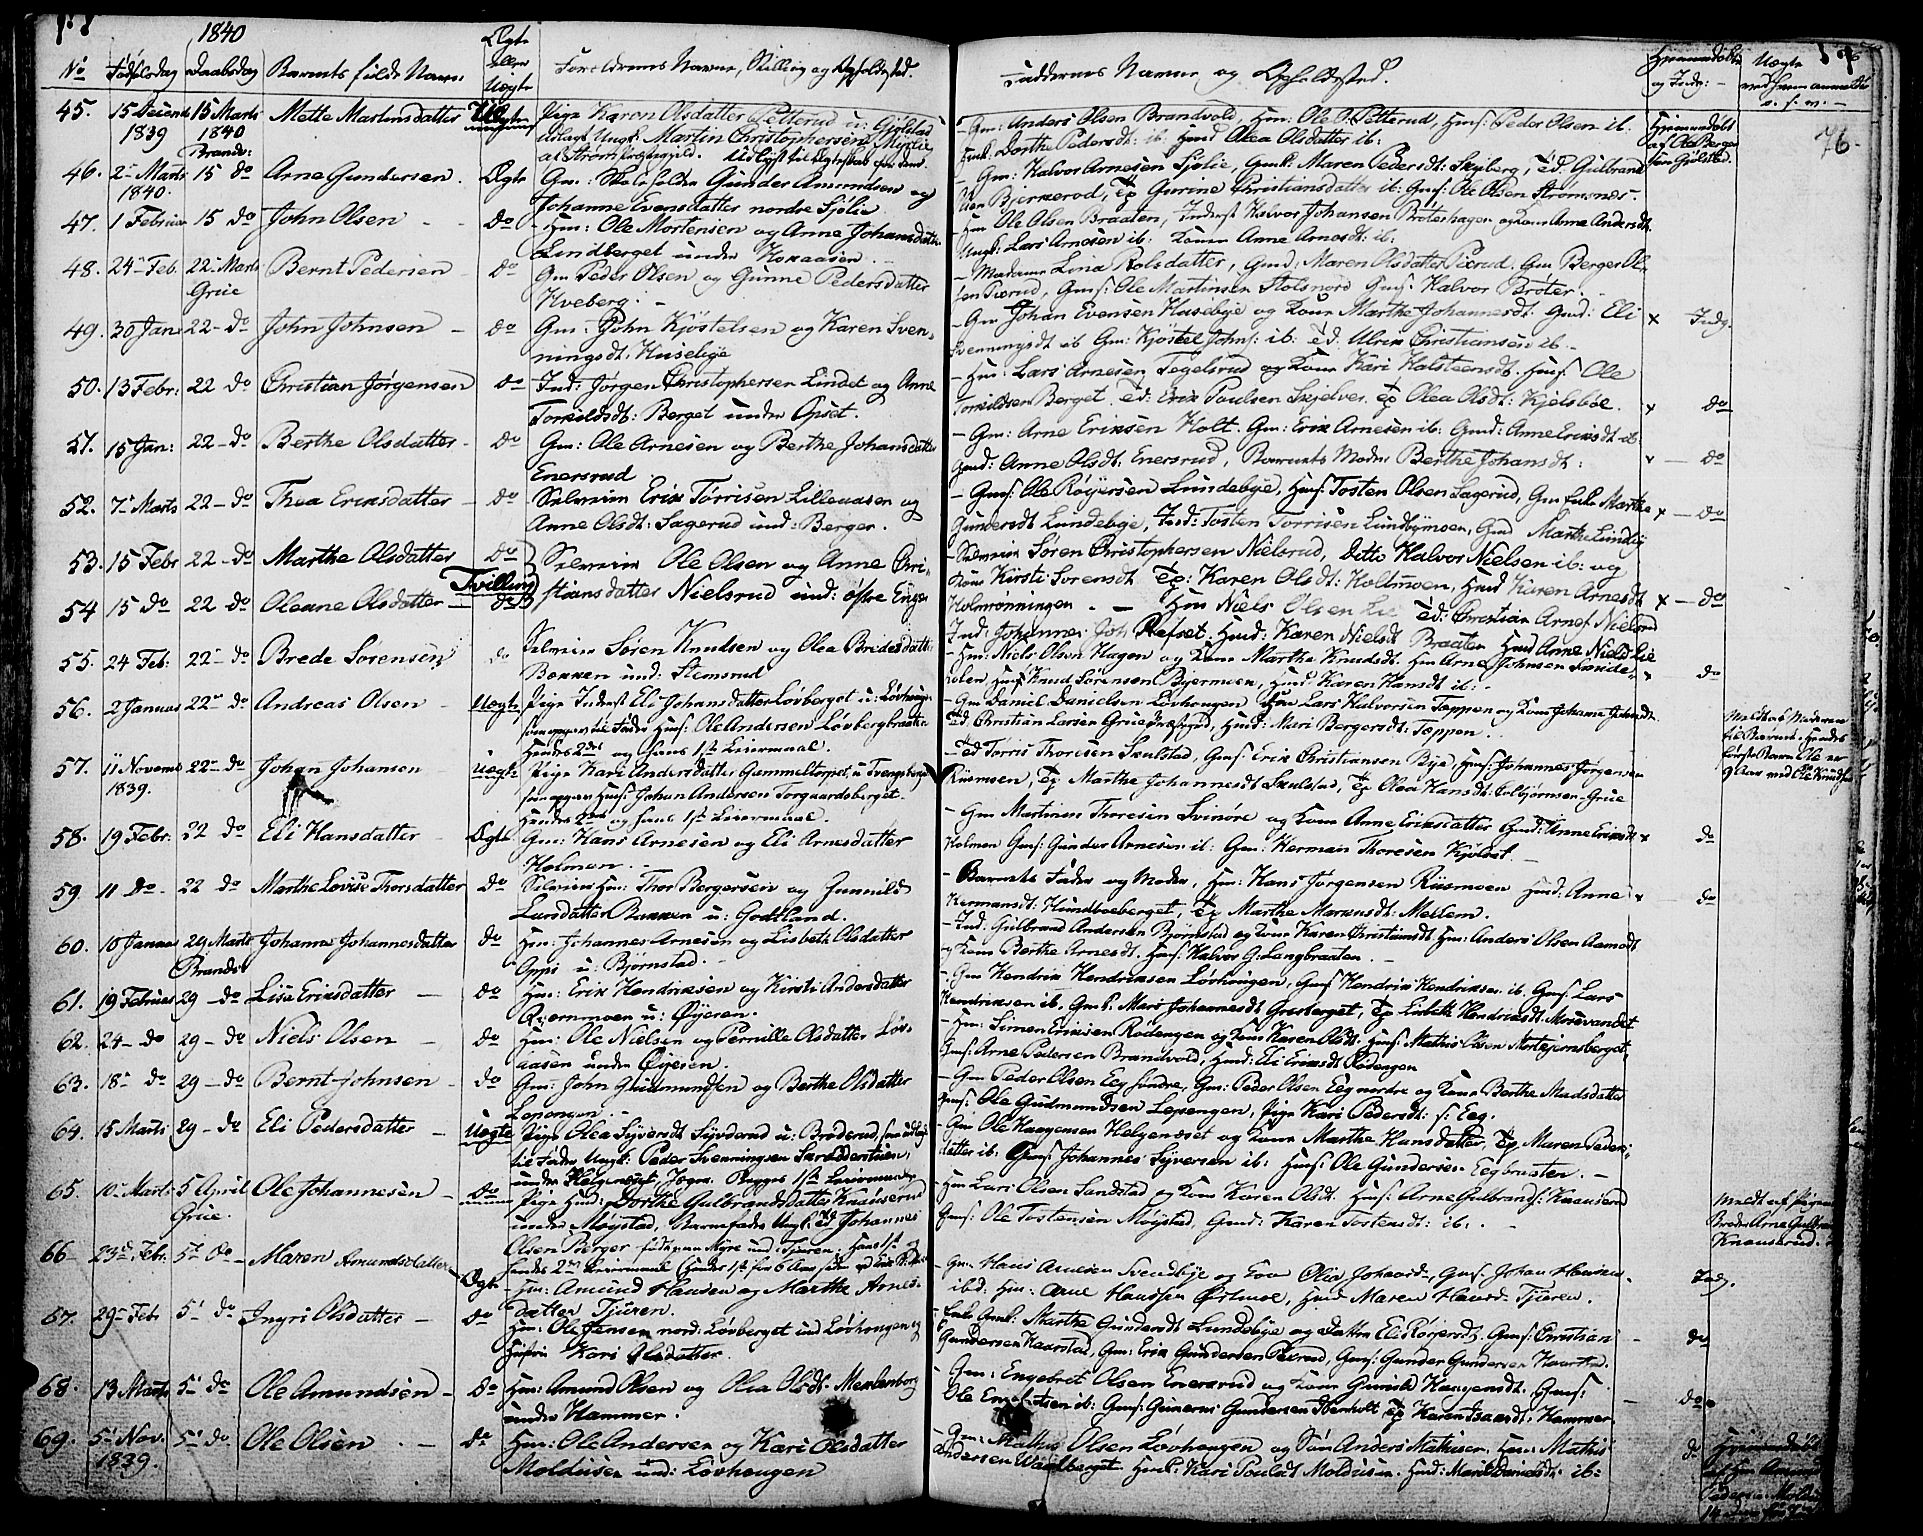 1840
No Fødselsdag Daabsdag Barnets fulde Navn. Ægte eller Uægte Forældrenes Navne, Stilling og Opholdssted. Faddernes Navne og Opholdssted. Hjemmedøbt og Indg: Uægte
76.
45. 15 Decemb 1839 15 Marts 1840 Brandv: Mette Martinsdatter Uægte Pige Karen Olsdatter Petterud u: Gjölstad
Martin Christophersen
- Gm: Anders Olsen Brandvold, Hm: Ole P. Petterud, Huusf: Peder Olsen ib.
Dorthe Pedersdt: ib. Olea Olsdatter ib:
46. 2 Marts 1840. 15 do Arne Gundersen. Ægte Gm: Skoleholder Gunder Amundsen og
Johanne Evensdatter nordre Sjølie
- Gm: Halvor Arnesen Sjølie, Gmk: Maren Pedersdt: Skyberg, Ed: Gulbrand
Bjerkerod, Ep Gurine Christiansdatter ib: Gmf: Ole Olsen Strømsnes -
47. 1 Februar 15 do John Olsen - - do - Hm: Ole Mortensen og Anne Johansdatter
Lindberget under Kokaasen. -
Hm Ole Olsen Braaten, Inderst Halvor Johansen Brøterhagen og Kone Anne Andersdt
Ungk: Lars Arnesen ib: Konen Anne Arnesdt: ib:
48. 24 Feb. 22 Marts Grue Bernt Pedersen - do Gm Peder Olsen og Gunne Pedersdatter
Hveberg. -
- Madame Lina Rolsdatter, Gmd: Maren Olsdatter Pixrud, Gm Berger Ol-
sen Pixrud, Gmf: Ole Martinsen Stolsnord Gmf: Halvor Brøter. -
49. 30 Jan 22 - do John Johnsen - do Gm: John Kjöstelsen og Karen Sven-
ningsdt. Husebye
- Gm Johan Evensen Husebye og Kone Marthe Johannesdt. Gmd: Eli x Indg.
Svenningsdt ib Gm: Kjöstel Johns: ib: Ed: Ulrik Christiansen ib -
50. 13 Febr: 22 do Christian Jørgensen do - Ind: Jørgen Christophersen Lindet og Anne
Torkildsdt: Berget under Opset.
- Hm: Lars Arnesen Tegelsrud og Kone Kari Halsteensdt. Huusf Ole
Torkildsen Berget. Ed: Erik Poulsen Skjelver Ep Olea Olsdt: Kjelsböe. x do
51. 15 Jan: 22 - do Berthe Olsdatter - do Gm: Ole Arnesen og Berthe Johansdatter
Enersrud
- Gm: Arne Eriksen Holt. Gm: Erik Arnesen ib: Gmd: Anne Eriksdt ib:
Gmd: Anne Olsdt: Enersrud, Barnets Moder Berthe Johansdt: x do
52. 7 Marts 22 - do Thea Eriksdatter - do - Selveier Erik Torrisen Lilleaasen og
Anne Olsdt: Sagerud und: Berger.
- Gmf: Ole Røyersen Lundebye, Huusf: Tosten Olsen Sagerud, Gm Enke Marthe
Gundersdt Lundebye, Ind: Tosten Torrisen Lundbymoen, Gmd Marthe Lundby x do
53. 15 Febr 22 - do Marthe Olsdatter do Selveier Ole Olsen og Anne Chri-
Tvilling
54 15 do 22 do Oleane Olsdatter do stiansdatter Nielsrud und: østre Enger
- Selveier Søren Christophersen Nielsrud, ditto Halvor Nielsen ib: og
Kone Kirsti Sorensdt Ep: Karen Olsdt: Holtmoen, Hmd Karen Arnesdt x - do
Holmrönningen - Hm Niels Olsen Lie Ed: Christian Arnes: Nielsrud
Ind: Johannes Refset. Hmd: Karen Nielsdt Braaten Hmd Anne Nielsd Lie
55. 24 Feb: 22 - do Brede Sörensen do Selveier Søren Knudsen og Olea Bredesdatt:
Bakken und: Stemsrud
- Hm: Niels Olsen Hagen og Kone Marthe Knudsdt. Hm Arne Johnsen Sande-
Huusf Knud Sörensen Byermoen, Hmd Karen Hansdt ib: - do
56. 2 Januar 22 do Andreas Olsen - Uægte Pige Inderst Eli Johansdatter Lövberget u: Lövhaugen
som opgav til Fader Huusf: Ole Andersen Lövbergbraaten
Hendes 2det og hans 1ste Leiermaal.
- Gm Daniel Danielsen Lövhaugen Hm Lars Halvorsen Tæppen og Kone Johanne
Ed: Christian Larsen Grue Præstegrd, Hmd: Mari Bergersdt: Tæppen.
57. 11 Novemb 1839. 22 - do Johan Johansen - Uægte Pige Kari Andersdatter Gammeltorpet u: Tvengsberg
som opgav Huusf: Johan Andersen Torgaardsberget.
Hendes 2det og hans 1ste Leiermaal.
- Ed Torris Thoresen Skulstad, Gmf: Erik Christiansen Bye, Huusf: Johannes Jørgensen
Riismoen, Ep Marthe Johannesdt Skulstad, Ep Olea Hansdt Grue
58. 19 Febr. 22 do Eli Hansdatter - Ægte Gm: Hans Arnesen og Eli Arnesdatter
Holmen. -
- Gm Martinus Thoresen Svinöre og Kone Anne Eriksdatter Gmd: Anne Eriksdt x do
Holmen Gmf: Gunder Arnesen ib: Gm: Herman Thoresen Kjölset.
59. 11 do - 22 do Marthe Lovise Thorsdatter do Selveier Hm: Thor Bergersen og Gunnild
Larsdatter Bakken u: Godtland.
- Barnets Fader og Moder, Hm: Hans Jørgensen Riismoen Hmd: Anne x do
Hermansdt: Hundboeberget, Ep Marthe Markusdt: Mellem.
60. 10 Januar 29 Marts Brandv Johanne Johannesdatter do Hm: Johannes Arnesen og Lisbeth Olsdatter
Oppi u: Bjørnstad. -
- Ind: Gulbrand Andersen Bjørnstad og Kone Karen Christiansdt Hm: Anders Olsen Aamodt
og Kone Berthe Arnesdt. Huusf: Halvor G: Langbraaten. -
61. 19 Februar 29 - do Lisa Eriksdatter - do Hm: Erik Hendriksen og Kirsti Andersdatter
Qværnmoen u: Øijeren.
- Gm Hendrik Hendriksen Lövhaugen, Gmf Hendrik Hendriksen ib. Gmf: Lars
Hendriksen ib, Gmk: Mari Johannesdt Gresberget, Ep Lisbeth Hendriksdt Mosevandet
62. 24 do 29 - do Niels Olsen - do Hm: Ole Nielsen og Pernille Olsdatter Löv-
aasen under Øijeren.
- Hm: Simen Eriksen Rodengen og Kone Karen Olsdt: Huusf: Mathis Olsen Mortkjernsberget,
Gmf: Arne Pedersen Brandvold, Hmd: Eli Eriksdt Rodengen
63. 18 do 29 - do Bernt Johnsen - do Gm: John Gudmundsen og Berthe Olsdatter
Lopengen. -
- Gm Peder Olsen Eeg søndre, Gm: Peder Olsen Eeg nordre og Kone Berthe Madsdatter
Gmf: Ole Gudmundsen Lopengen, Pige Kari Pedersdt: s: Eeg.
64. 15 Marts 29 - do Eli Pedersdatter - Uægte Pige Olea Syversdt Syvderud u: Brøderud, som udlagde
til Fader Ungk: Peder Svenningsen
under Helgeneset, Begges 1ste Leiermaal
- Gm Ole Haagensen Helgenæset og Kone Marthe Hansdatter, Ep Maren Peders-
datter ib: Gmf: Johannes Syversen ib: Huusf: Ole Gundersen Eegbraaten. -
65. 10 Marts 5 April Grue. Ole Johannesen - do Pige Hmd: Dorthe Gulbrandsdatter Knausrud
under Møystad, Barnefader Ungk: Johannes
Olsen Berger født paa Myre und: Tjuren. Hans 1ste og
hendes 2det Leiermaal
- Hm Lars Olsen Sandstad og Kone Karen Olsdt. Huusf: Arne Gulbrands: Knausrud
Gmf: Ole Tostensen Møystad, Gmd: Karen Tostensdt: ib: -
Meldt af Pigens
Broder Arne Gulbrands
Knauserud.
66 - 23de Febr. 5te do - Maren Amundsdatter Ægte - Hm: Amund Hansen og Marthe Arnes-
datter Tjuren.
- Gm. Hans Arnesen Svendbye og Kone Olia Johansd., Gmf. Johan Hansen Indg.
ibd. Hm: Arne Hanssen Östmoe, Hmd Maren Hansd. Tjueren.
67. 29 Febr 5 do Ingri Olsdatter - do Hm: Ole Jensen nord: Lövberget und Lövhaugen og
Hustru Kari Olsdatter
- Enke Gmk: Marthe Gundersdt Lundebye og Datter Eli Röyersdt, Gmf: Christian - do
Gundersen Kaarstad, Gm: Erik Gundersen Pixrud, Gmf: Gunder Gundersen Kaarstad.
68. 13 Marts 5 do Ole Amundsen - do Hm: Amund Olsen og Olea Olsdt. Menkenborg
under Hammer.
- Gm: Engebret Olsen Enersrud og Kone Gunild Haagensdt. Gmf:
Ole Engebretsen ib: Gmf: Gunerus Gundersen Ibenholt Ep Karen Isaksdt: Hammer. - do
69. 5 Nov. 1839. 5 do. Ole Olsen. - do Hm: Ole Andersen og Kari Olsdatter
Moldusen und: Lövhaugen
- Gm: Mathis Olsen Lövhaugen og Søn Anders Mathisen. Hm: Mathis do
Andersen Waalberget Hmk: Kari Poulsdt Moldusen. Hmd: Mari Danielsdt: ib: